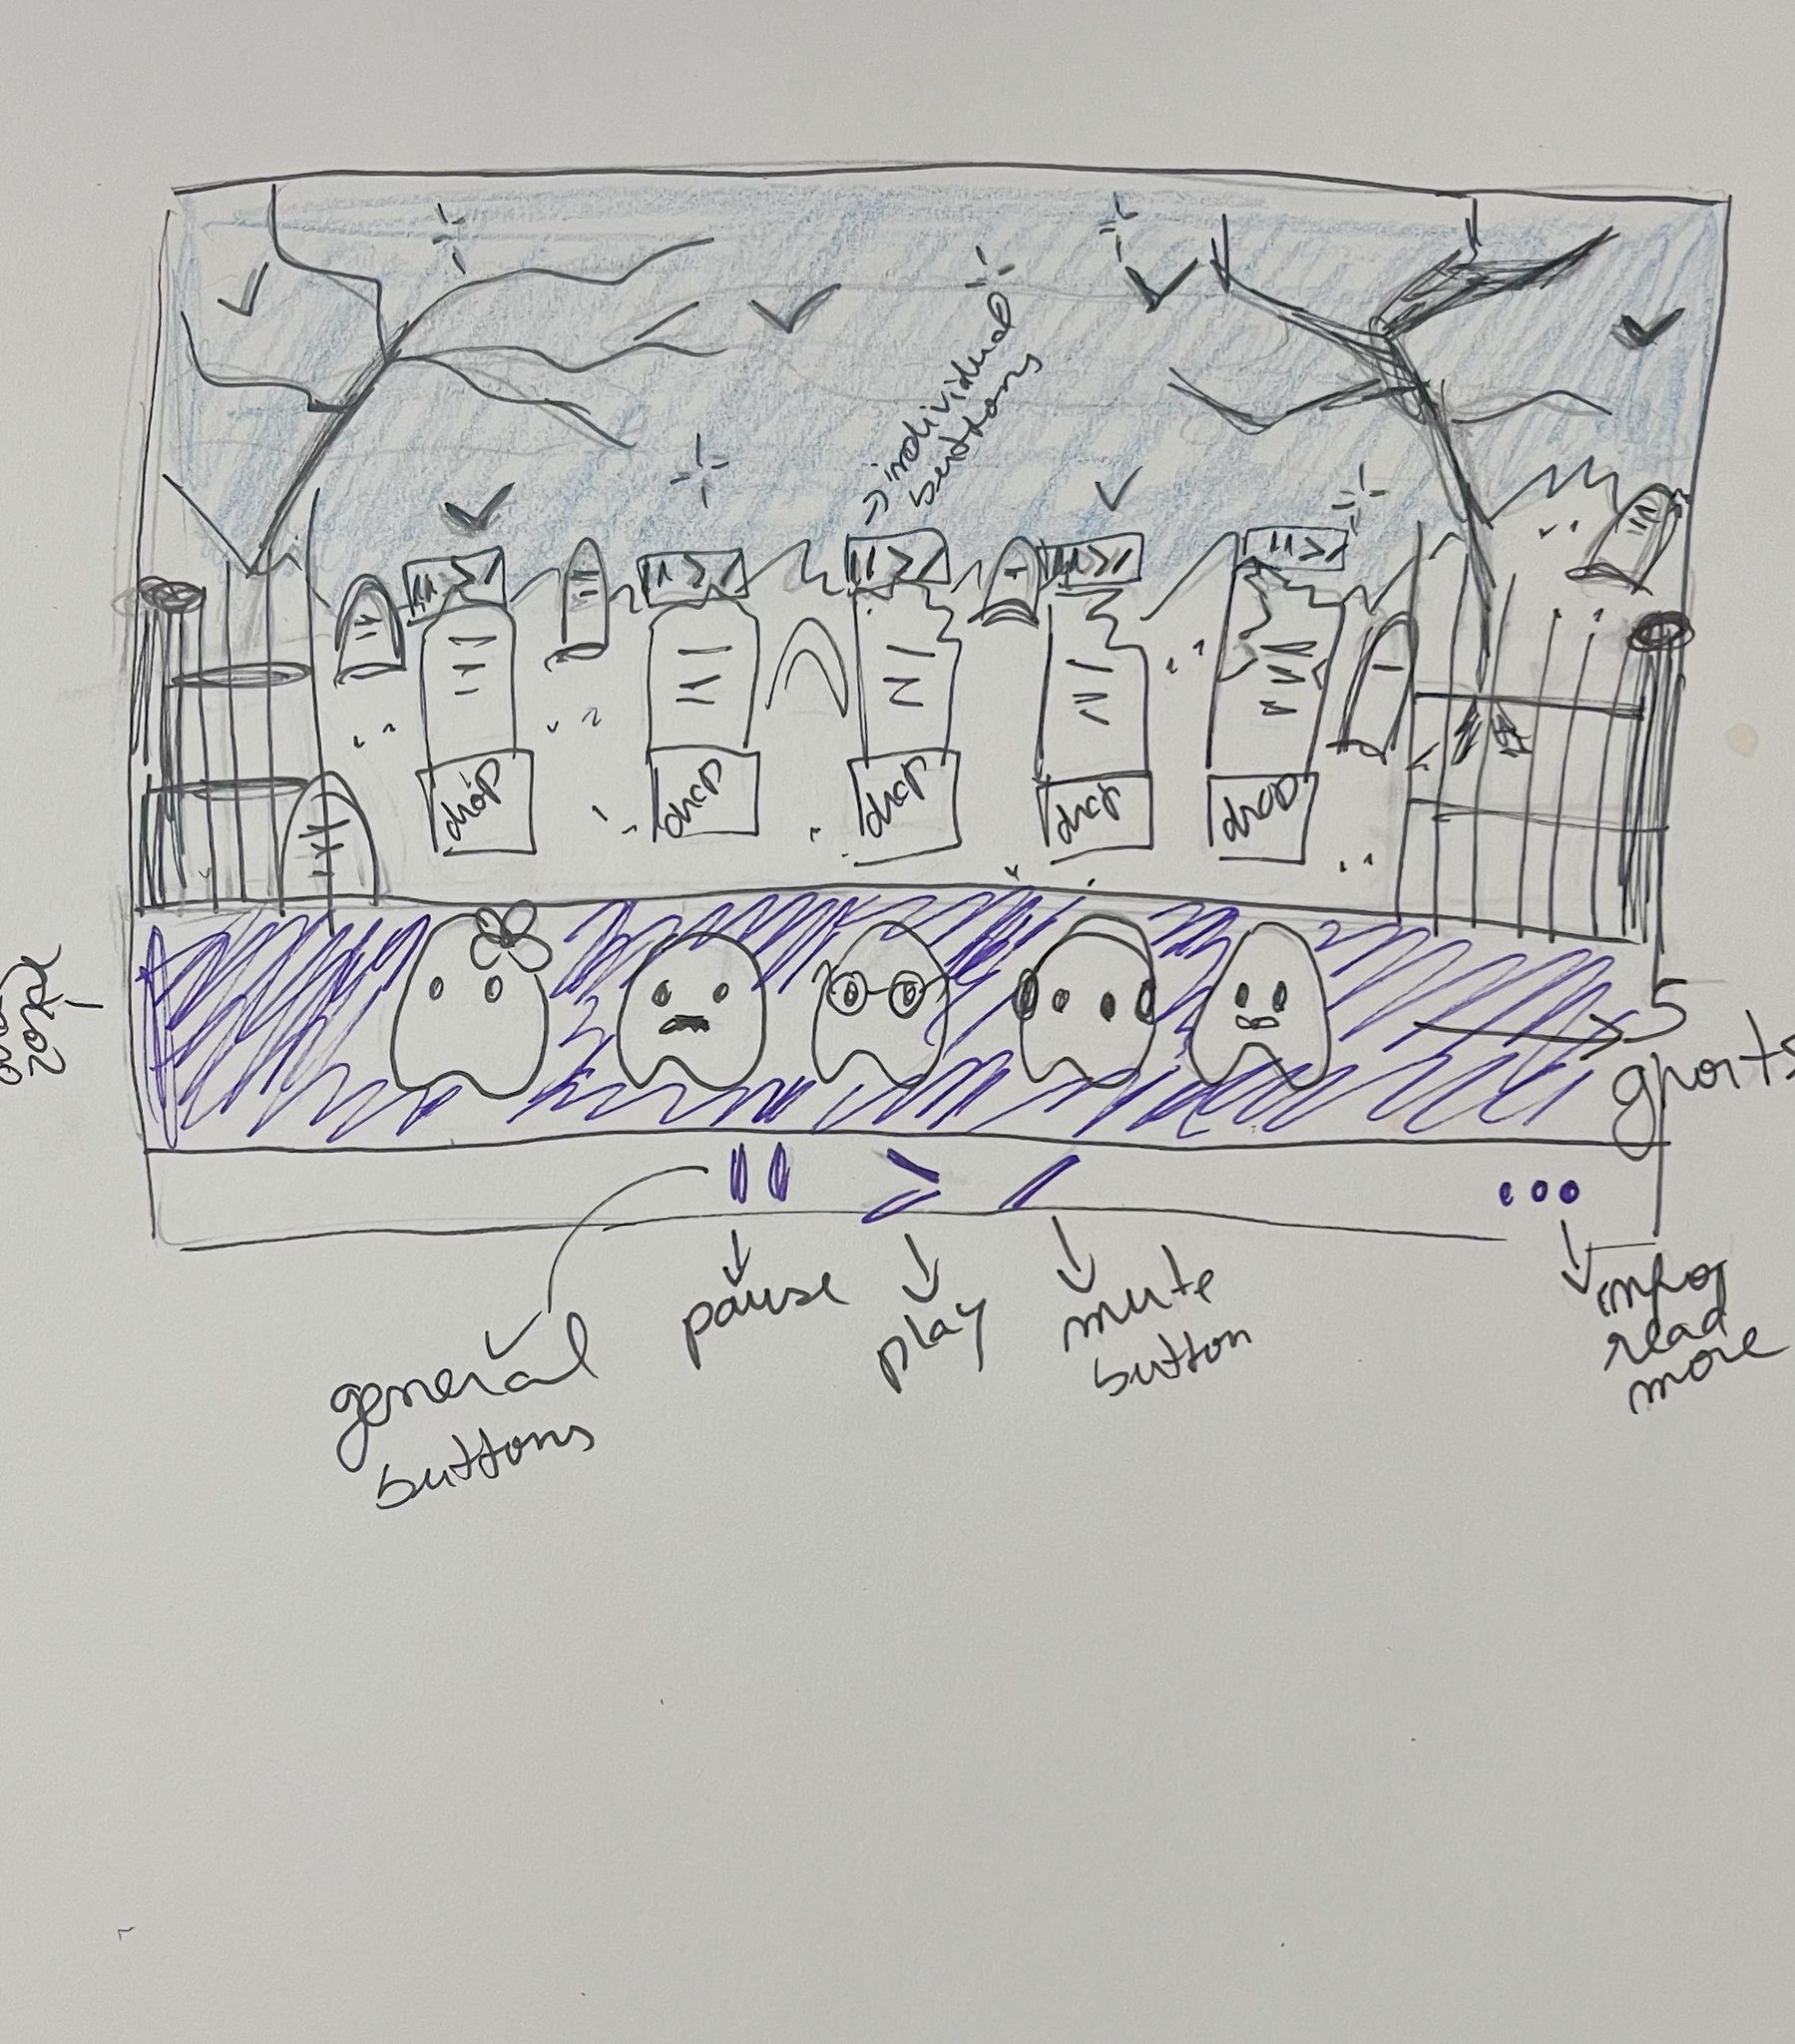 individual
buttons
drop
drop
drop
drop
drop
zone
5
ghosts
general
buttons
pause
play
mute
button
info
read
more